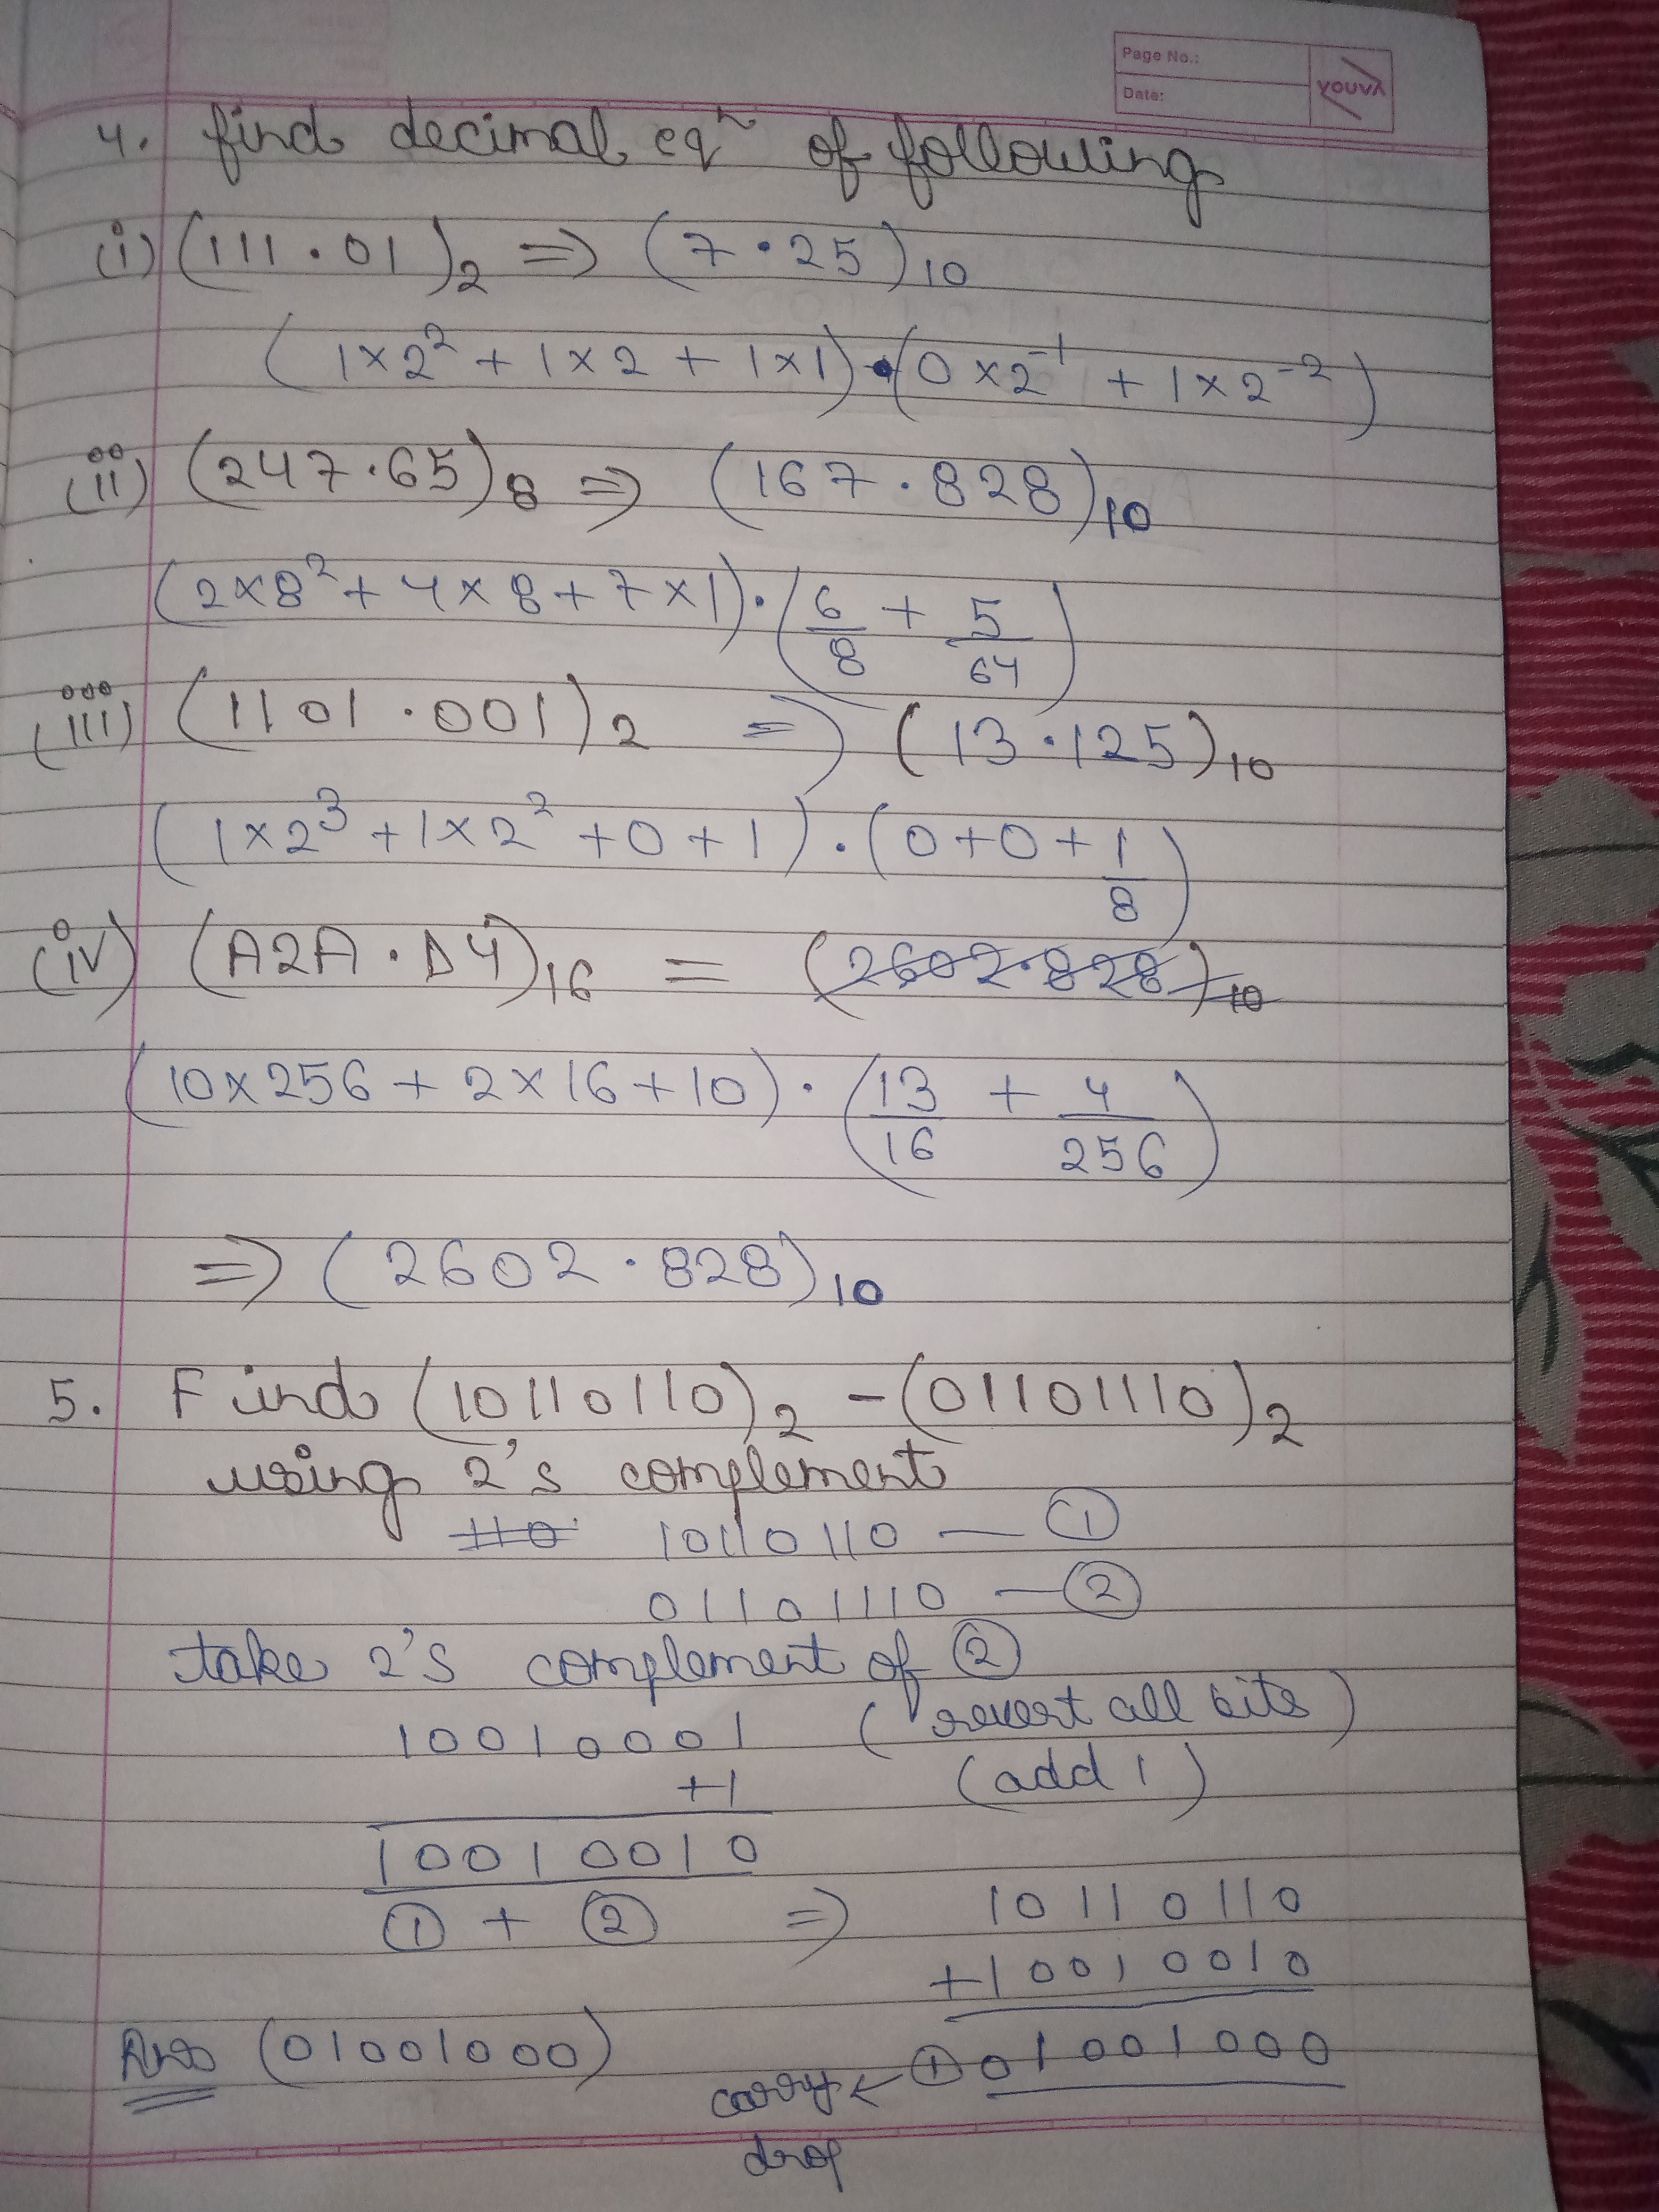 Page No.:
Date:
YOUVA
4. find decimal eqⁿ of following
(i) (111.01)₂ => (7.25)₁₀
(1×2² + 1×2 + 1×1).(0×2⁻¹ + 1×2⁻²)
(ii) (247.65)₈ => (167.828)₁₀
(2×8² + 4×8 + 7×1).(6/8 + 5/64)
(iii) (1101.001)₂ => (13.125)₁₀
(1×2³ + 1×2² + 0 + 1).(0+0+1/8)
(iv) (A2A.D4)₁₆ = (2602.828)₁₀
(10×256 + 2×16 + 10).(13/16 + 4/256)
=> (2602.828)₁₀
5. Find (10110110)₂ - (01101110)₂
using 2's complement
110 10110110 — ①
01101110 — ②
take 2's complement of ②
10010001 (revert all bits)
+1 (add 1)
10010010
① + ② => 10110110
+10010010
Ans (01001000) carry ← ① 01001000
drop